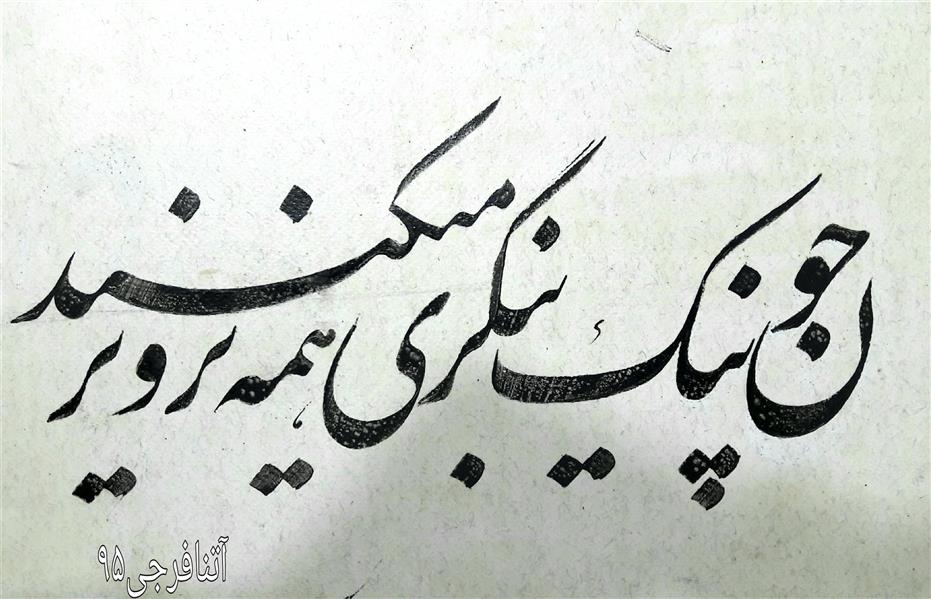 چون نیک بنگری همه تزویر میکنند
آتنا فرجی ۹۵